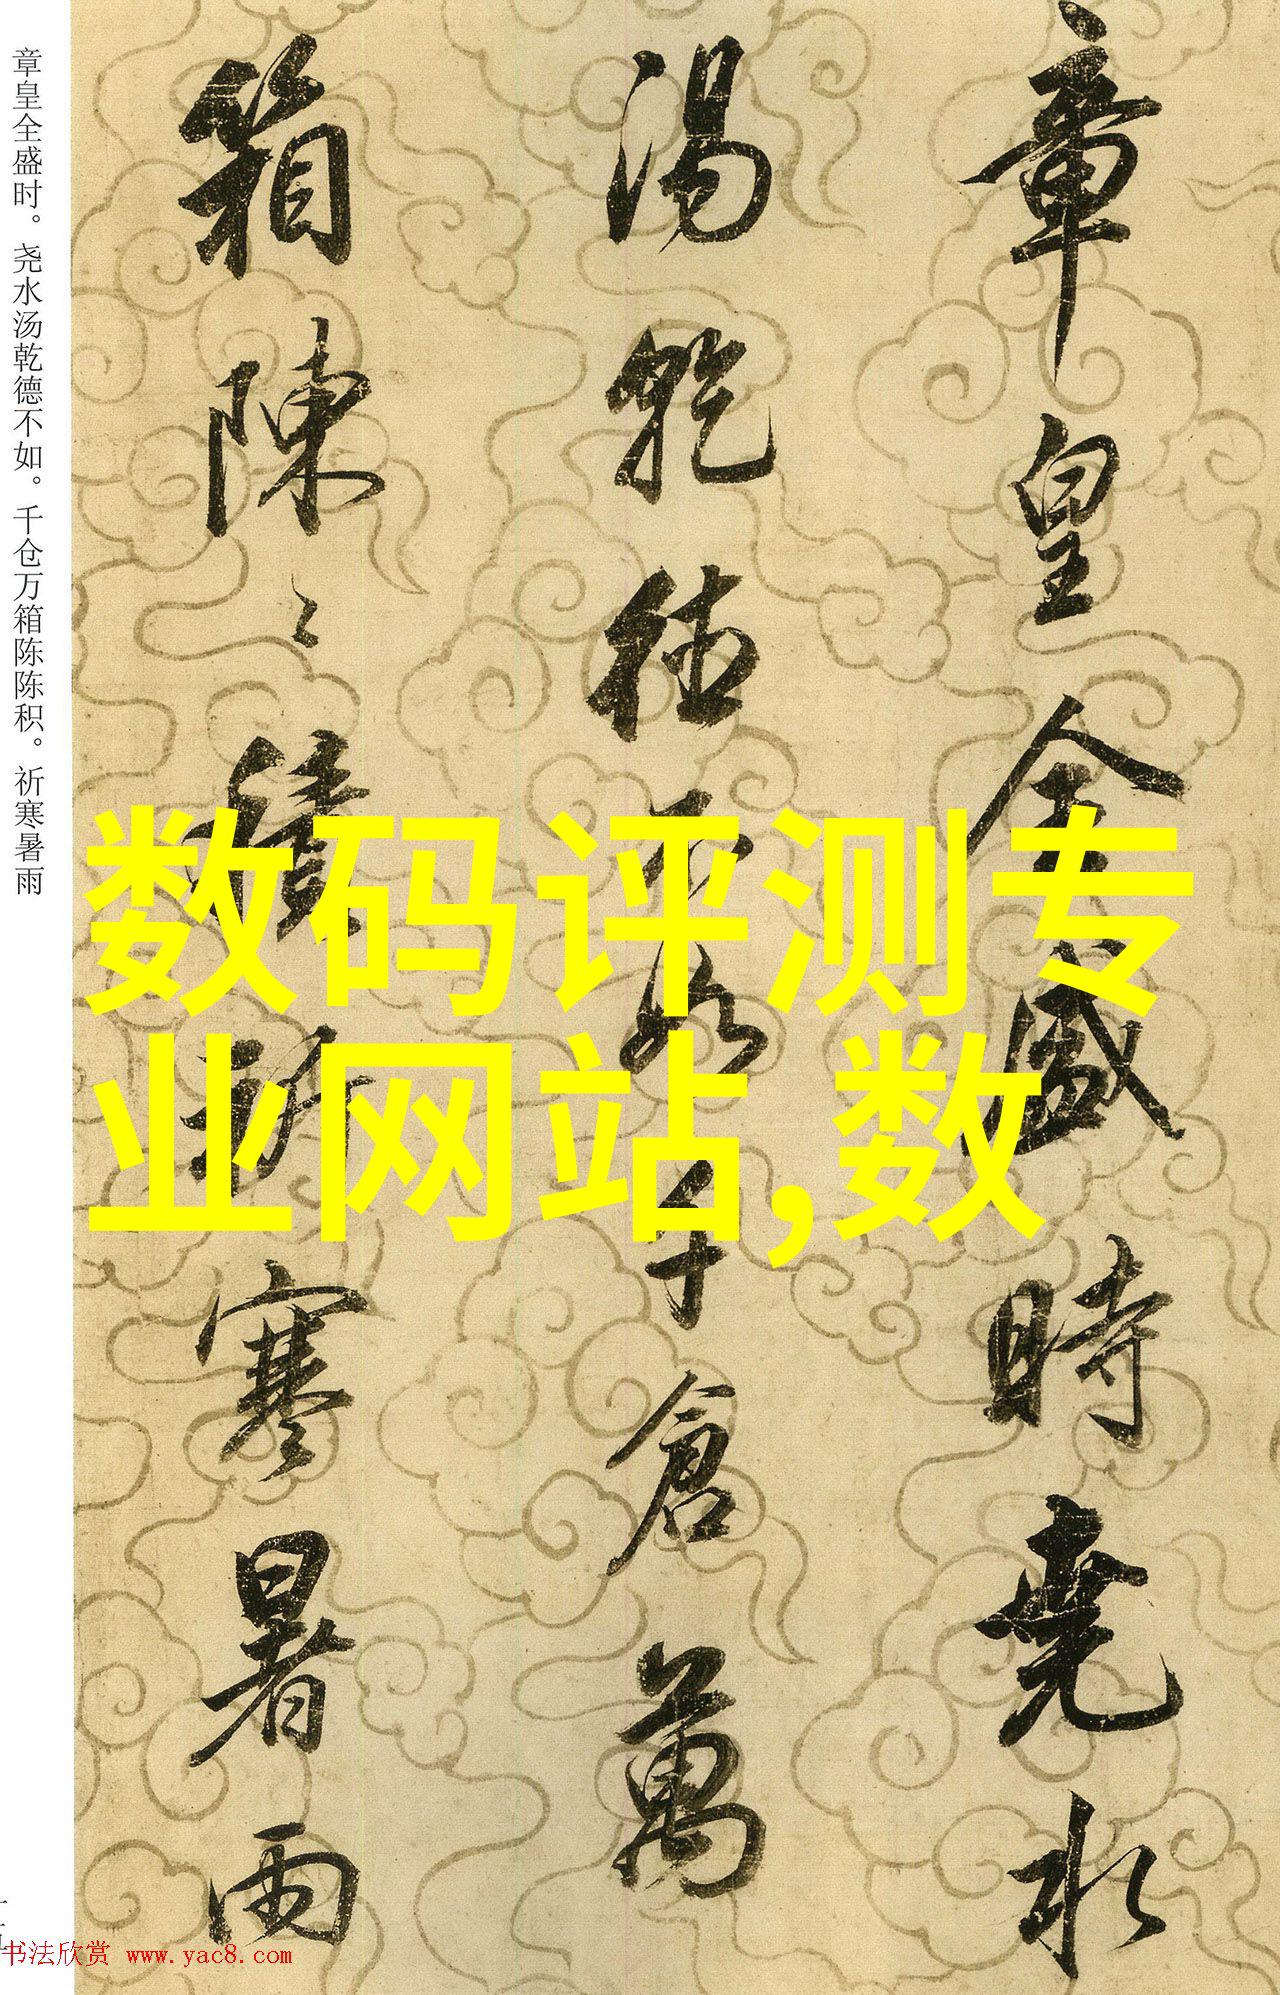 章皇全盛時堯水
湯乾德不如千倉萬
箱陳〻積祈寒暑雨
章皇全盛时。尧水汤乾德不如。千仓万箱陈陈积。祈寒暑雨
数码评测专
业网站,数
书法欣赏 www.yac8.com